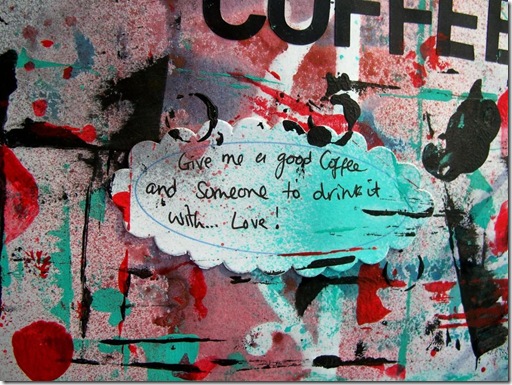 COFFEE
Give me a good Coffee
and Someone to drink it
with... Love!